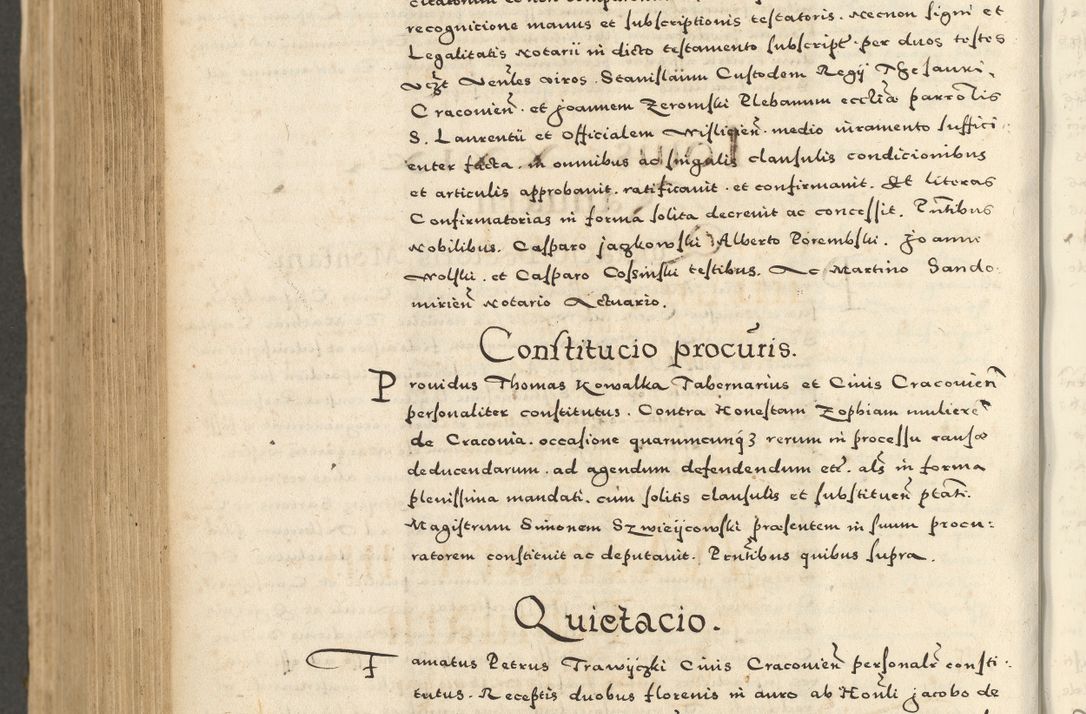 recognicione manus et subscriptionis testatoris. Necnon signi et
Legalitatis Notarii in dicto testamento subscript per duos testes
vczt Venles viros Stanislaum Custodem Regij Thesauri
Cracovien. et Joannem Zeromski Plebanum ecclia parrolis
S. Laurentii et Officialem Wislicien. medio iuramento suffici
enter facta. in omnibus ac singulis clausulis condicionibus
et articulis approbavit. ratificavit. et confirmavit. Et literas
Confirmatorias in forma solita decrevit ac concessit. Pntibus
Nobilibus. Casparo Jaczkowski Alberto Porembski. Joanne
Wolski. et Casparo Cossinski testibus. Ac Martino Sando
mirien Notario Actuario.
Constitucio procuris.
Providus Thomas Kowalka Tabernarius et Civis Cracovien
personaliter constitutus. Contra Honestam Zophiam muliere
de Cracovia. occasione quarumcunq3 rerum in processu causæ
deducendarum. ad agendum defendendum etc. als in forma
plenissima mandati. cum solitis clausulis et substituen ptati.
Magistrum Simonem Szwieijcowski præsentem in suum procu:
ratorem constituit ac deputavit. Pentibus quibus supra.
Quietacio.
Famatus Petrus Trawijczki Civis Cracovien personalr consti
tutus. Receptis duobus florenis in auro ab Honli Jacobo de